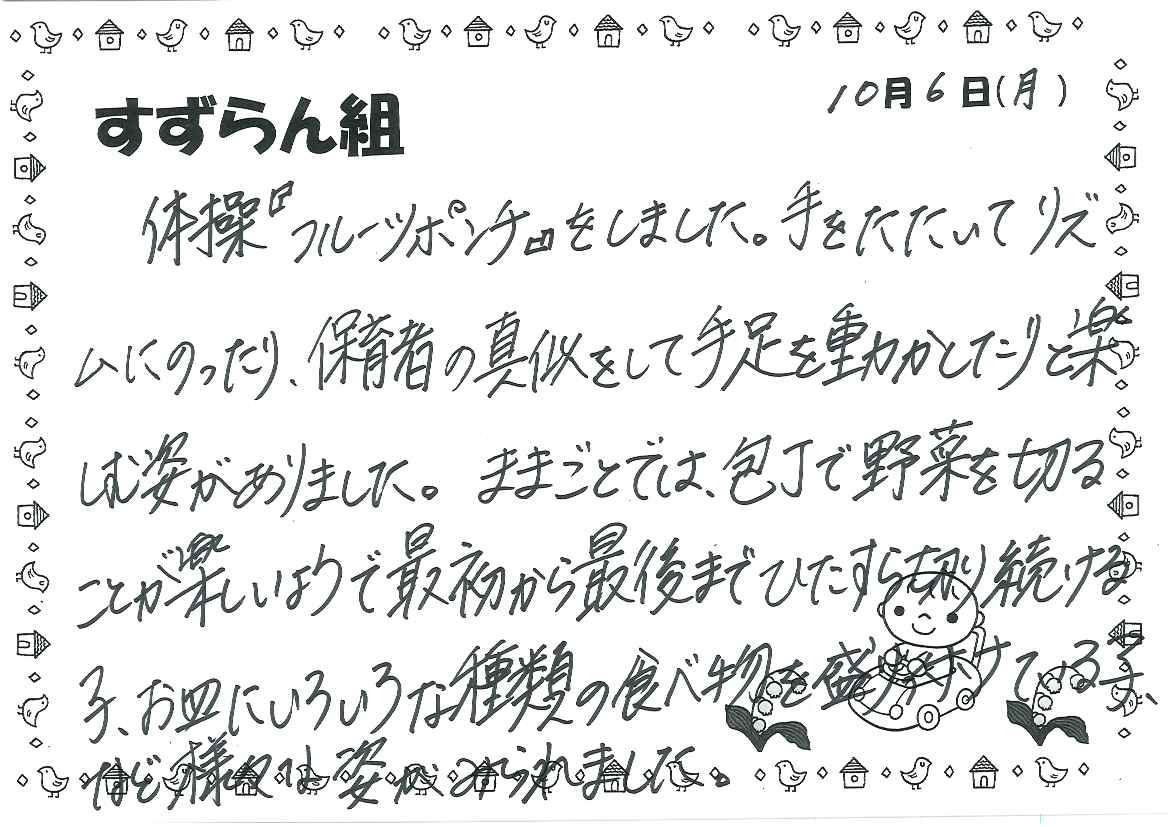 すずらん組
10月6日(月)
体操『フルーツポンチ』をしました。手をたたいてリズ
ムにのったり、保育者の真似をして手足を動かしたりと楽
しむ姿がありました。ままごとでは、包丁で野菜を切る
ことが楽しいようで最初から最後までひたすら切り続ける
子、お皿にいろいろな種類の食べ物を盛り付けている子、
など様々な姿がみられました。